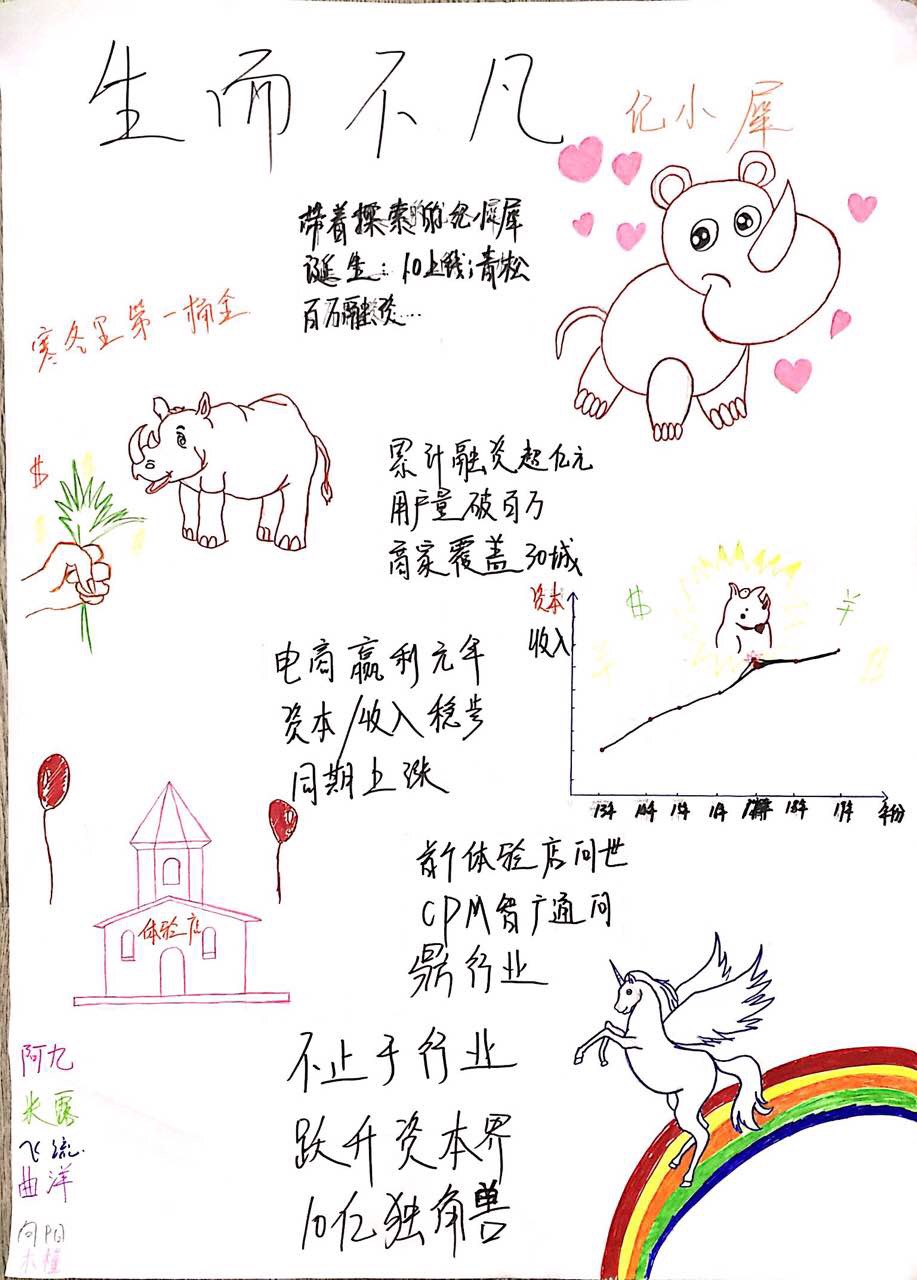 生而不凡
亿小犀
带着探索的亿小犀
诞生：10上线；青松
百万融资...
寒冬里第一桶金
$
累计融资超亿元
用户量破百万
商家覆盖30城
资本
收入
$
¥
电商赢利元年
资本/收入稳步
同期上涨
13年 14年 15年 16年 17年 18年 19年 年份
首个体验店问世
CPM智广通问
鼎行业
体验店
不止于行业
跃升资本界
10亿独角兽
阿九
米露
飞流
曲洋
向阳
木槿